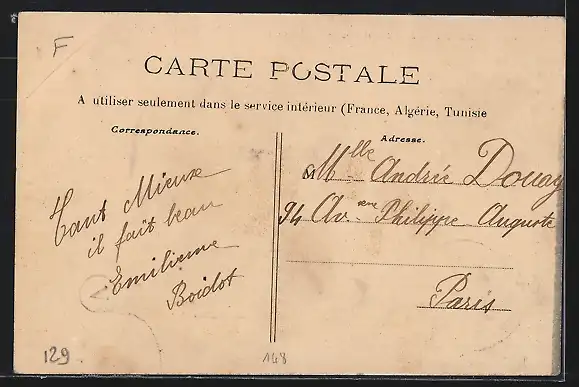 F
CARTE POSTALE
A utiliser seulement dans le service intérieur (France, Algérie, Tunisie
Correspondance.
Tant Mieux
il fait beau
Emilienne
Boidot
Adresse.
Mlle Andrée Douay
94 Av-enue Philippe Auguste
Paris
129
148